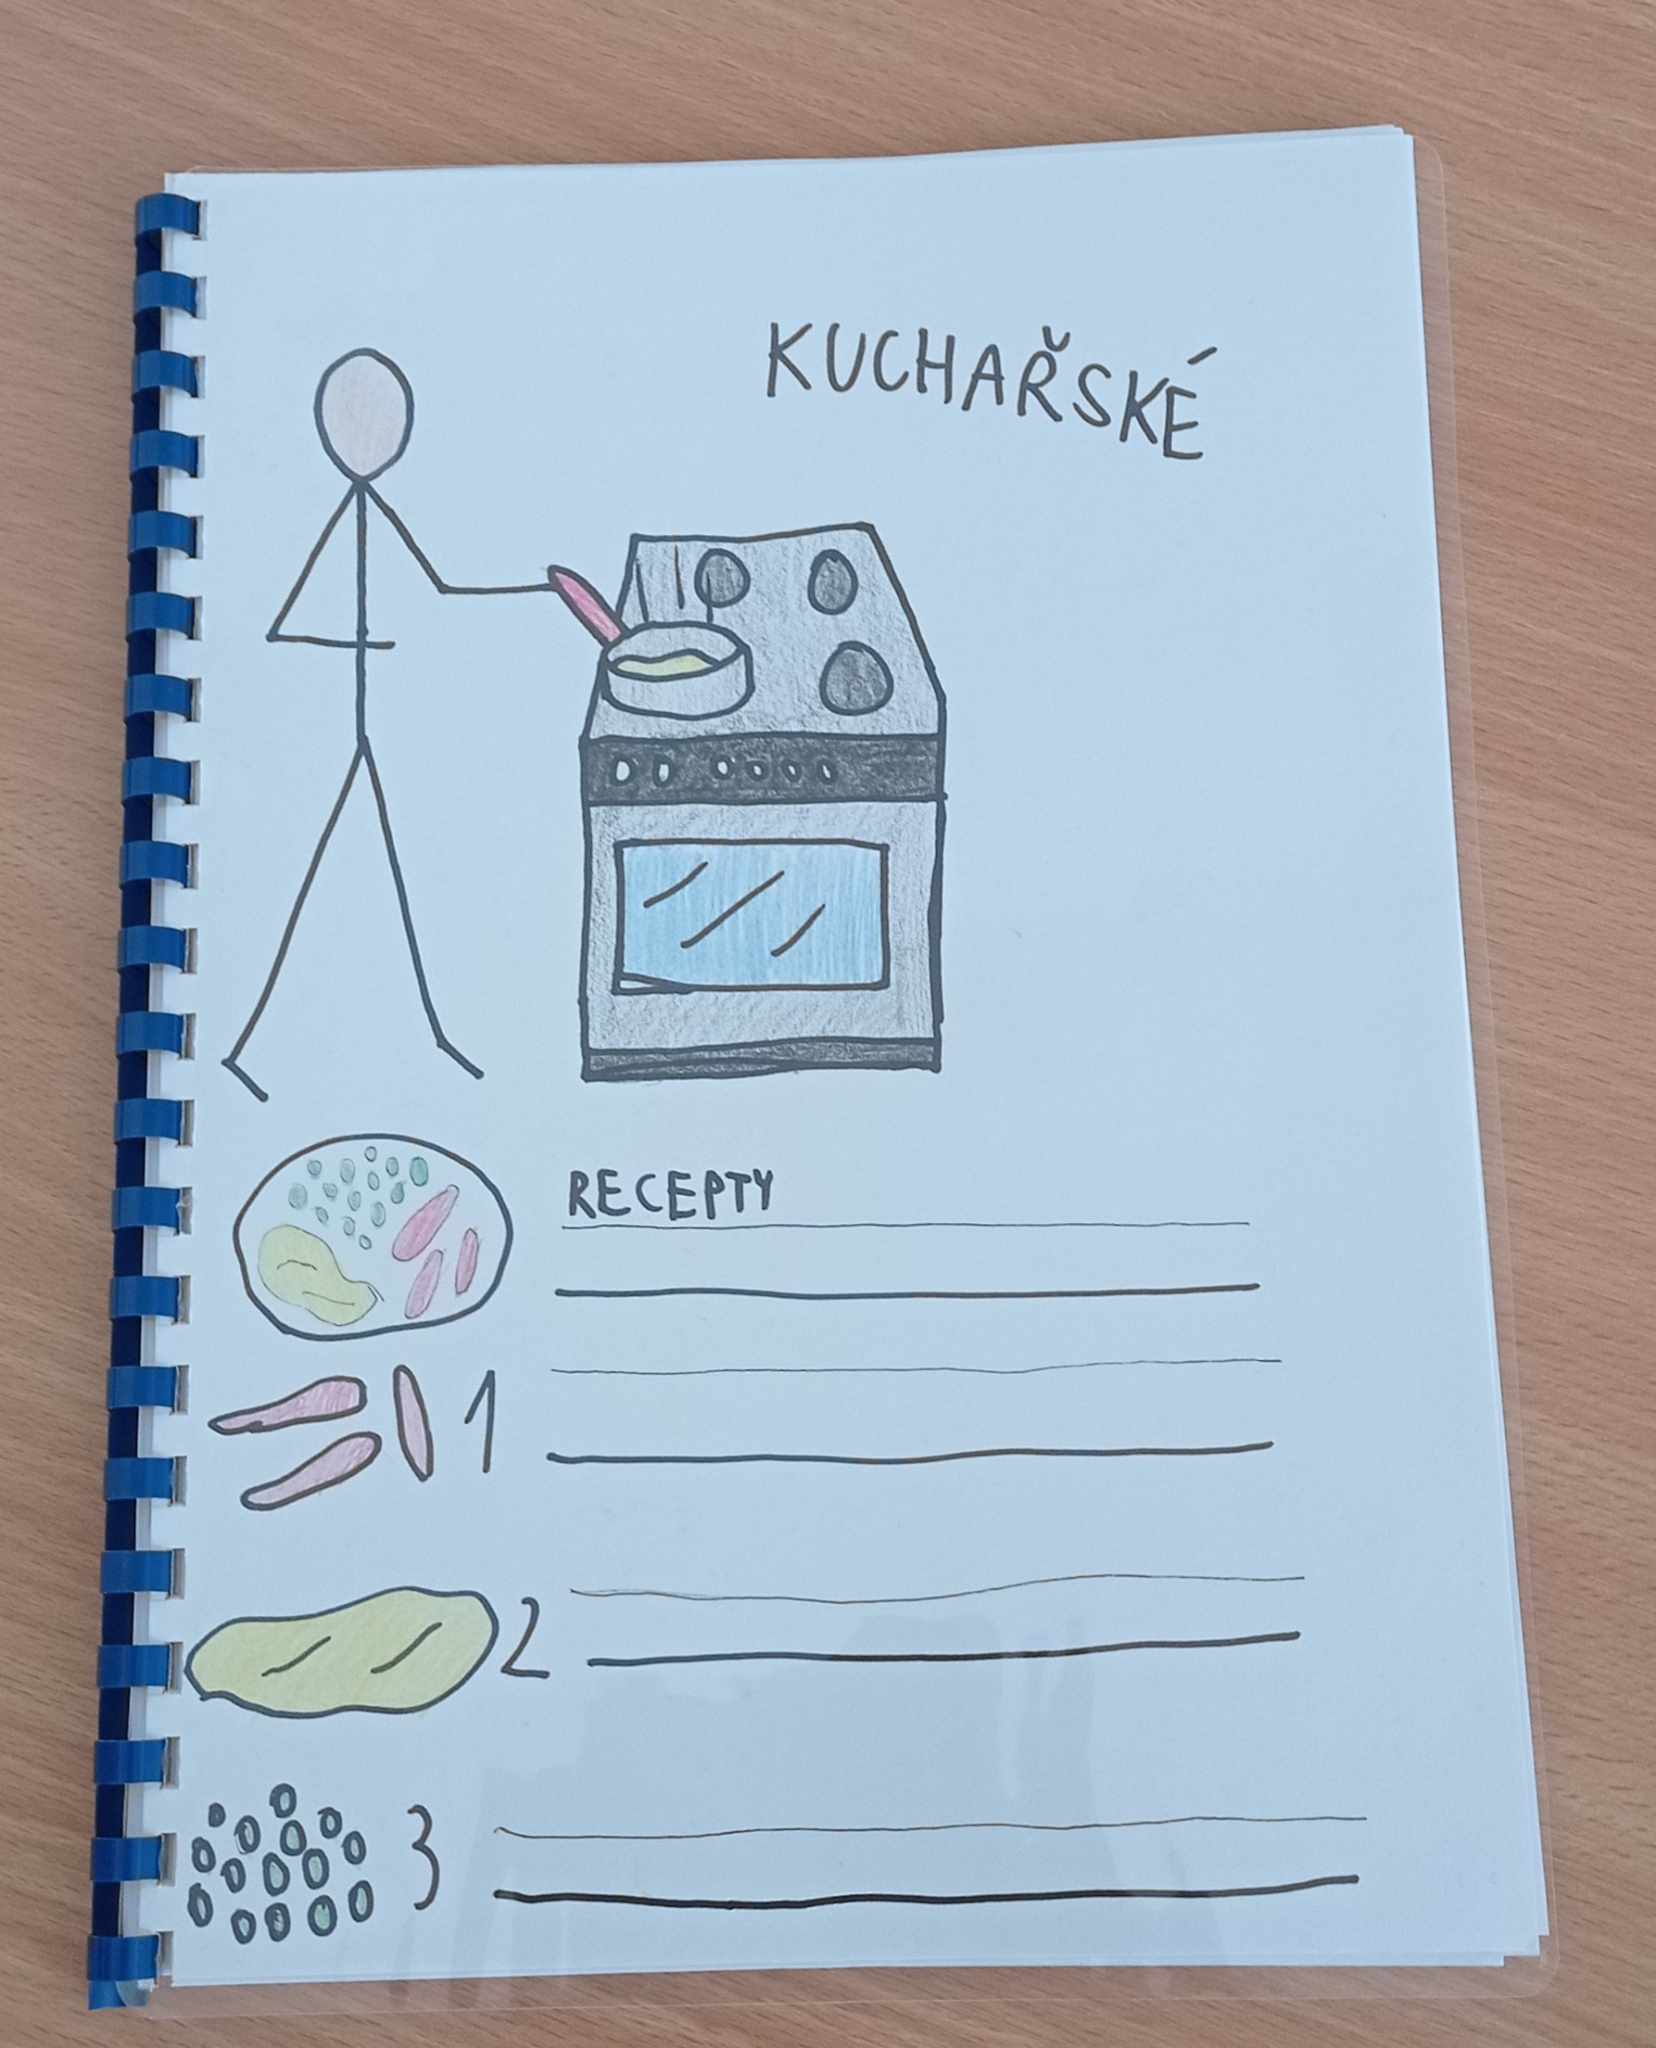 KUCHAŘSKÉ
RECEPTY
1
2
3